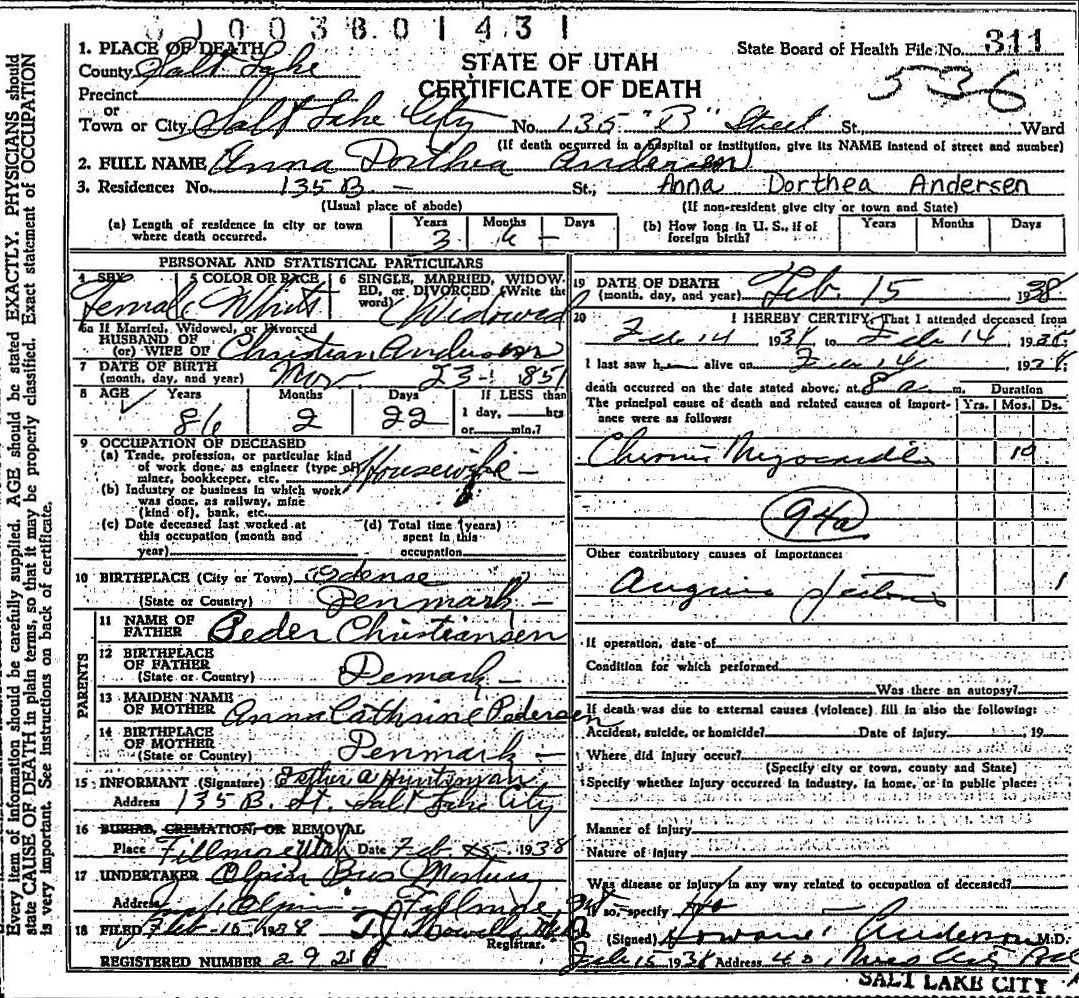 Every item of information should be carefully supplied. AGE should be stated EXACTLY. PHYSICIANS should
state CAUSE OF DEATH in plain terms, so that it may be properly classified. Exact statement of OCCUPATION
is very important. See instructions on back of certificate.
0 0 3 8 0 1 4 3 1
1. PLACE OF DEATH
County Salt Lake
STATE OF UTAH
CERTIFICATE OF DEATH
State Board of Health File No. 311
536
Precinct
or
Town or City Salt Lake City No. 135 "B" Street St. Ward
(If death occurred in a hospital or institution, give its NAME instead of street and number)
2. FULL NAME Anna Dorthea Andersen
3. Residence: No. 135 B - St., Anna Dorthea Andersen
(Usual place of abode) (If non-resident give city or town and State)
(a) Length of residence in city or town where death occurred. Years 3 Months Days -
(b) How long in U. S., if of foreign birth? Years Months Days
PERSONAL AND STATISTICAL PARTICULARS
4 SEX Female
5 COLOR OR RACE White
6 SINGLE, MARRIED, WIDOWED, or DIVORCED (Write the word) Widowed
6a If Married, Widowed, or Divorced
HUSBAND OF
(or) WIFE OF Christian Andersen
7 DATE OF BIRTH
(month, day, and year) Nov. 23 - 1851
8 AGE Years 86 Months 2 Days 22 If LESS than 1 day, hrs or min.?
9 OCCUPATION OF DECEASED
(a) Trade, profession, or particular kind of work done, as engineer (type of) miner, bookkeeper, etc. Housewife -
(b) Industry or business in which work was done, as railway, mine (kind of), bank, etc.
(c) Date deceased last worked at this occupation (month and year)
(d) Total time (years) spent in this occupation
10 BIRTHPLACE (City or Town) Odense
(State or Country) Denmark -
PARENTS
11 NAME OF FATHER Peder Christiansen
12 BIRTHPLACE OF FATHER
(State or Country) Demark -
13 MAIDEN NAME OF MOTHER Anna Cathrine Pedersen
14 BIRTHPLACE OF MOTHER
(State or Country) Denmark -
15 INFORMANT (Signature) Esther A Huntsman
Address 135 B. St. Salt Lake City
16 BURIAL, CREMATION, OR REMOVAL
Place Fillmore Utah Date Feb 1938
17 UNDERTAKER Olpin Bros
Address Olpin - Fillmore,
18 FILED Feb - 16 - 1938 T J Howells
Registrar.
REGISTERED NUMBER 292
19 DATE OF DEATH
(month, day, and year) Feb. 15 1938
20 I HEREBY CERTIFY, That I attended deceased from
Feb 14 1938, to Feb 14 1938,
I last saw h alive on Feb 14 1938,
death occurred on the date stated above, at 8 a m.
Duration
Yrs. Mos. Ds.
The principal cause of death and related causes of importance were as follows:
Chronic Myocarditis 10
94a
Other contributory causes of importance:
Angina Pectoris 1
If operation, date of
Condition for which performed
Was there an autopsy?
If death was due to external causes (violence) fill in also the following:
Accident, suicide, or homicide? Date of injury , 19
Where did injury occur?
(Specify city or town, county and State)
Specify whether injury occurred in industry, in home, or in public place:
Manner of injury
Nature of injury
Was disease or injury in any way related to occupation of deceased?
If so, specify No
(Signed) Howard Anderson M.D.
Feb 15 1938 Address
SALT LAKE CITY